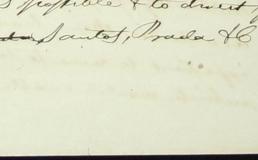 possible & to divert
Santos, Prada & C